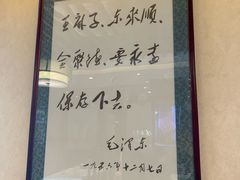 王麻子、东来顺、
全聚德要永远
保存下去。
毛泽东
一九五六年十二月七日